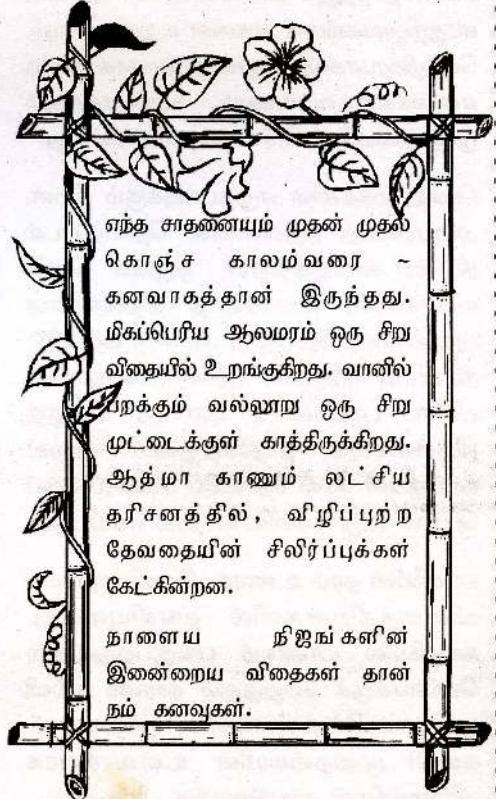 எந்த சாதனையும் முதன் முதல்
கொஞ்ச காலம்வரை ~
கனவாகத்தான் இருந்தது.
மிகப்பெரிய ஆலமரம் ஒரு சிறு
விதையில் உறங்குகிறது. வானில்
பறக்கும் வல்லூறு ஒரு சிறு
முட்டைக்குள் காத்திருக்கிறது.
ஆத்மா காணும் லட்சிய
தரிசனத்தில், விழிப்புற்ற
தேவதையின் சிலிர்ப்புக்கள்
கேட்கின்றன.
நாளைய நிஜங்களின்
இனைறைய விதைகள் தான்
நம் கனவுகள்.